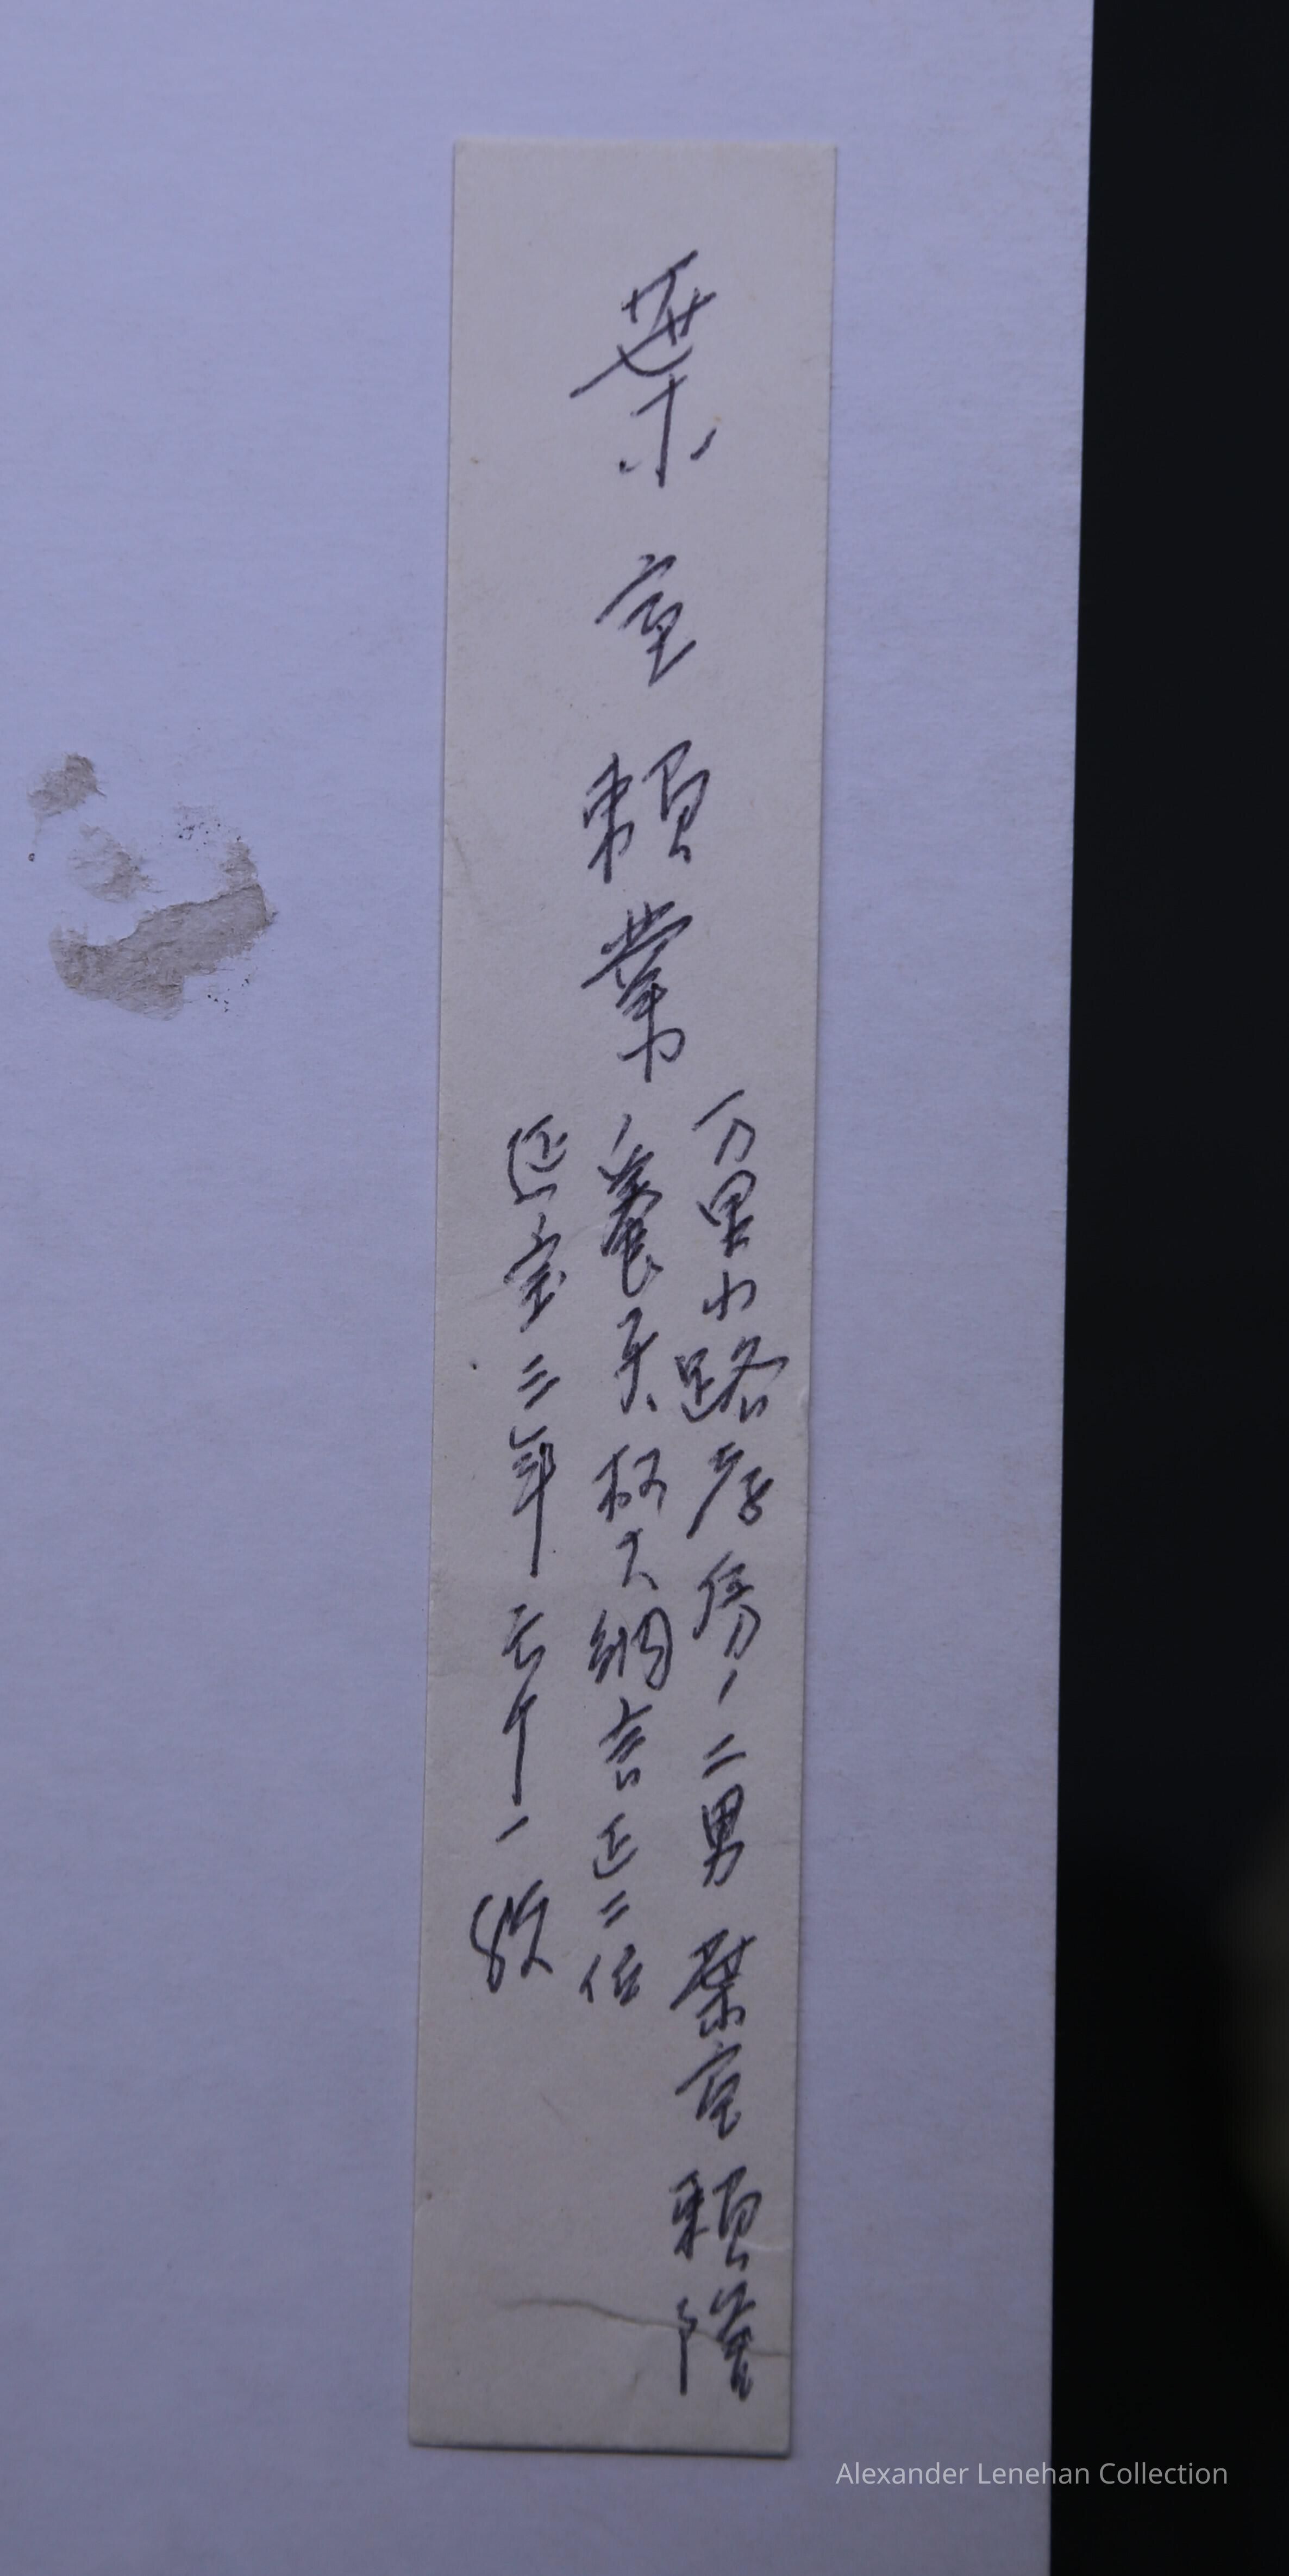 葉室頼業
万里小路孝房ノ二男葉室頼隆
ノ養子权大納言正二位
延宝三年六十一歿
Alexander Lenehan Collection